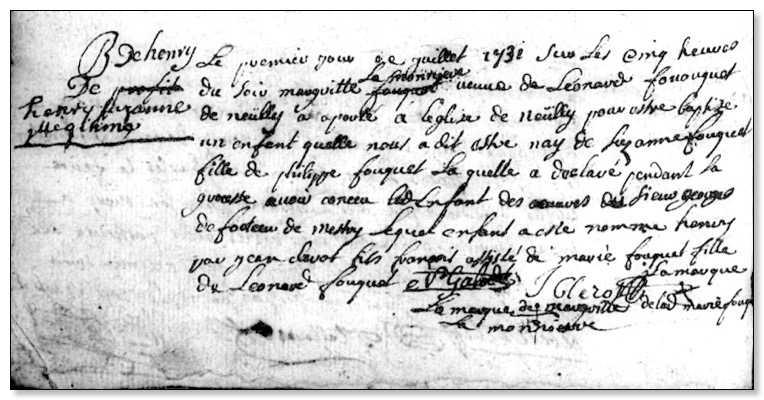 B De henry
De
henry suzanne
illegitime
Le premier jour de juillet 1731 sur les cinq heures
du soir margritte La monnoiere veuve de Leonard fououquet
de neüilly a aporté a leglise de neüilly pour estre baptizé
un enfant quelle nous a dit estre nay de suzanne fouquet
fille de philippe fouquet La quelle a desclaré pendant la
grocesse avoir conceu led Enfant des œuvres du sieur georges
de foctecu de mestry Lequel enfant a este nomme henry
par jean clerot fils francois assisté de marie fouquet fille
de Leonard fouquet
J Clerot
La marque
de lad marie fouq
La marque de margritte
La monnoierre